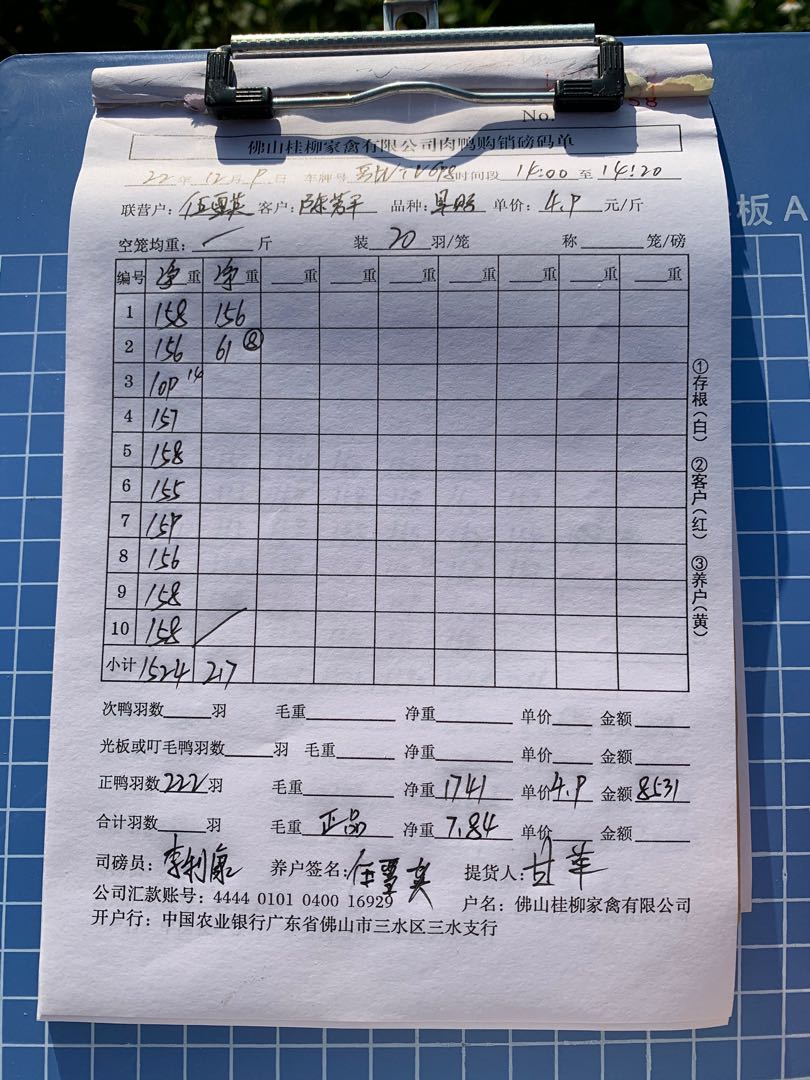 No.
佛山桂柳家禽有限公司肉鸭购销磅码单
22年12月9日 车牌号 时间段 14:00 至 14:20
联营户: 客户: 品种: 单价: 4.9 元/斤
空笼均重: / 斤 装 20 羽/笼 称 笼/磅
编号 净重 净重 重 重 重 重 重 重 重
1 158 156
2 156 61 ⑧
3 109 14
4 157
5 158
6 155
7 159
8 156
9 158
10 158
小计 1524 217
次鸭羽数 羽 毛重 净重 单价 金额
光板或叮毛鸭羽数 羽 毛重 净重 单价 金额
正鸭羽数 222 羽 毛重 净重 1741 单价 4.9 金额 8531
合计羽数 羽 毛重 正品 净重 7.84 单价 金额
司磅员: 李利 养户签名: 提货人: 甘
公司汇款账号: 4444 0101 0400 16929 户名: 佛山桂柳家禽有限公司
开户行: 中国农业银行广东省佛山市三水区三水支行
①存根(白) ②客户(红) ③养户(黄)
板 A